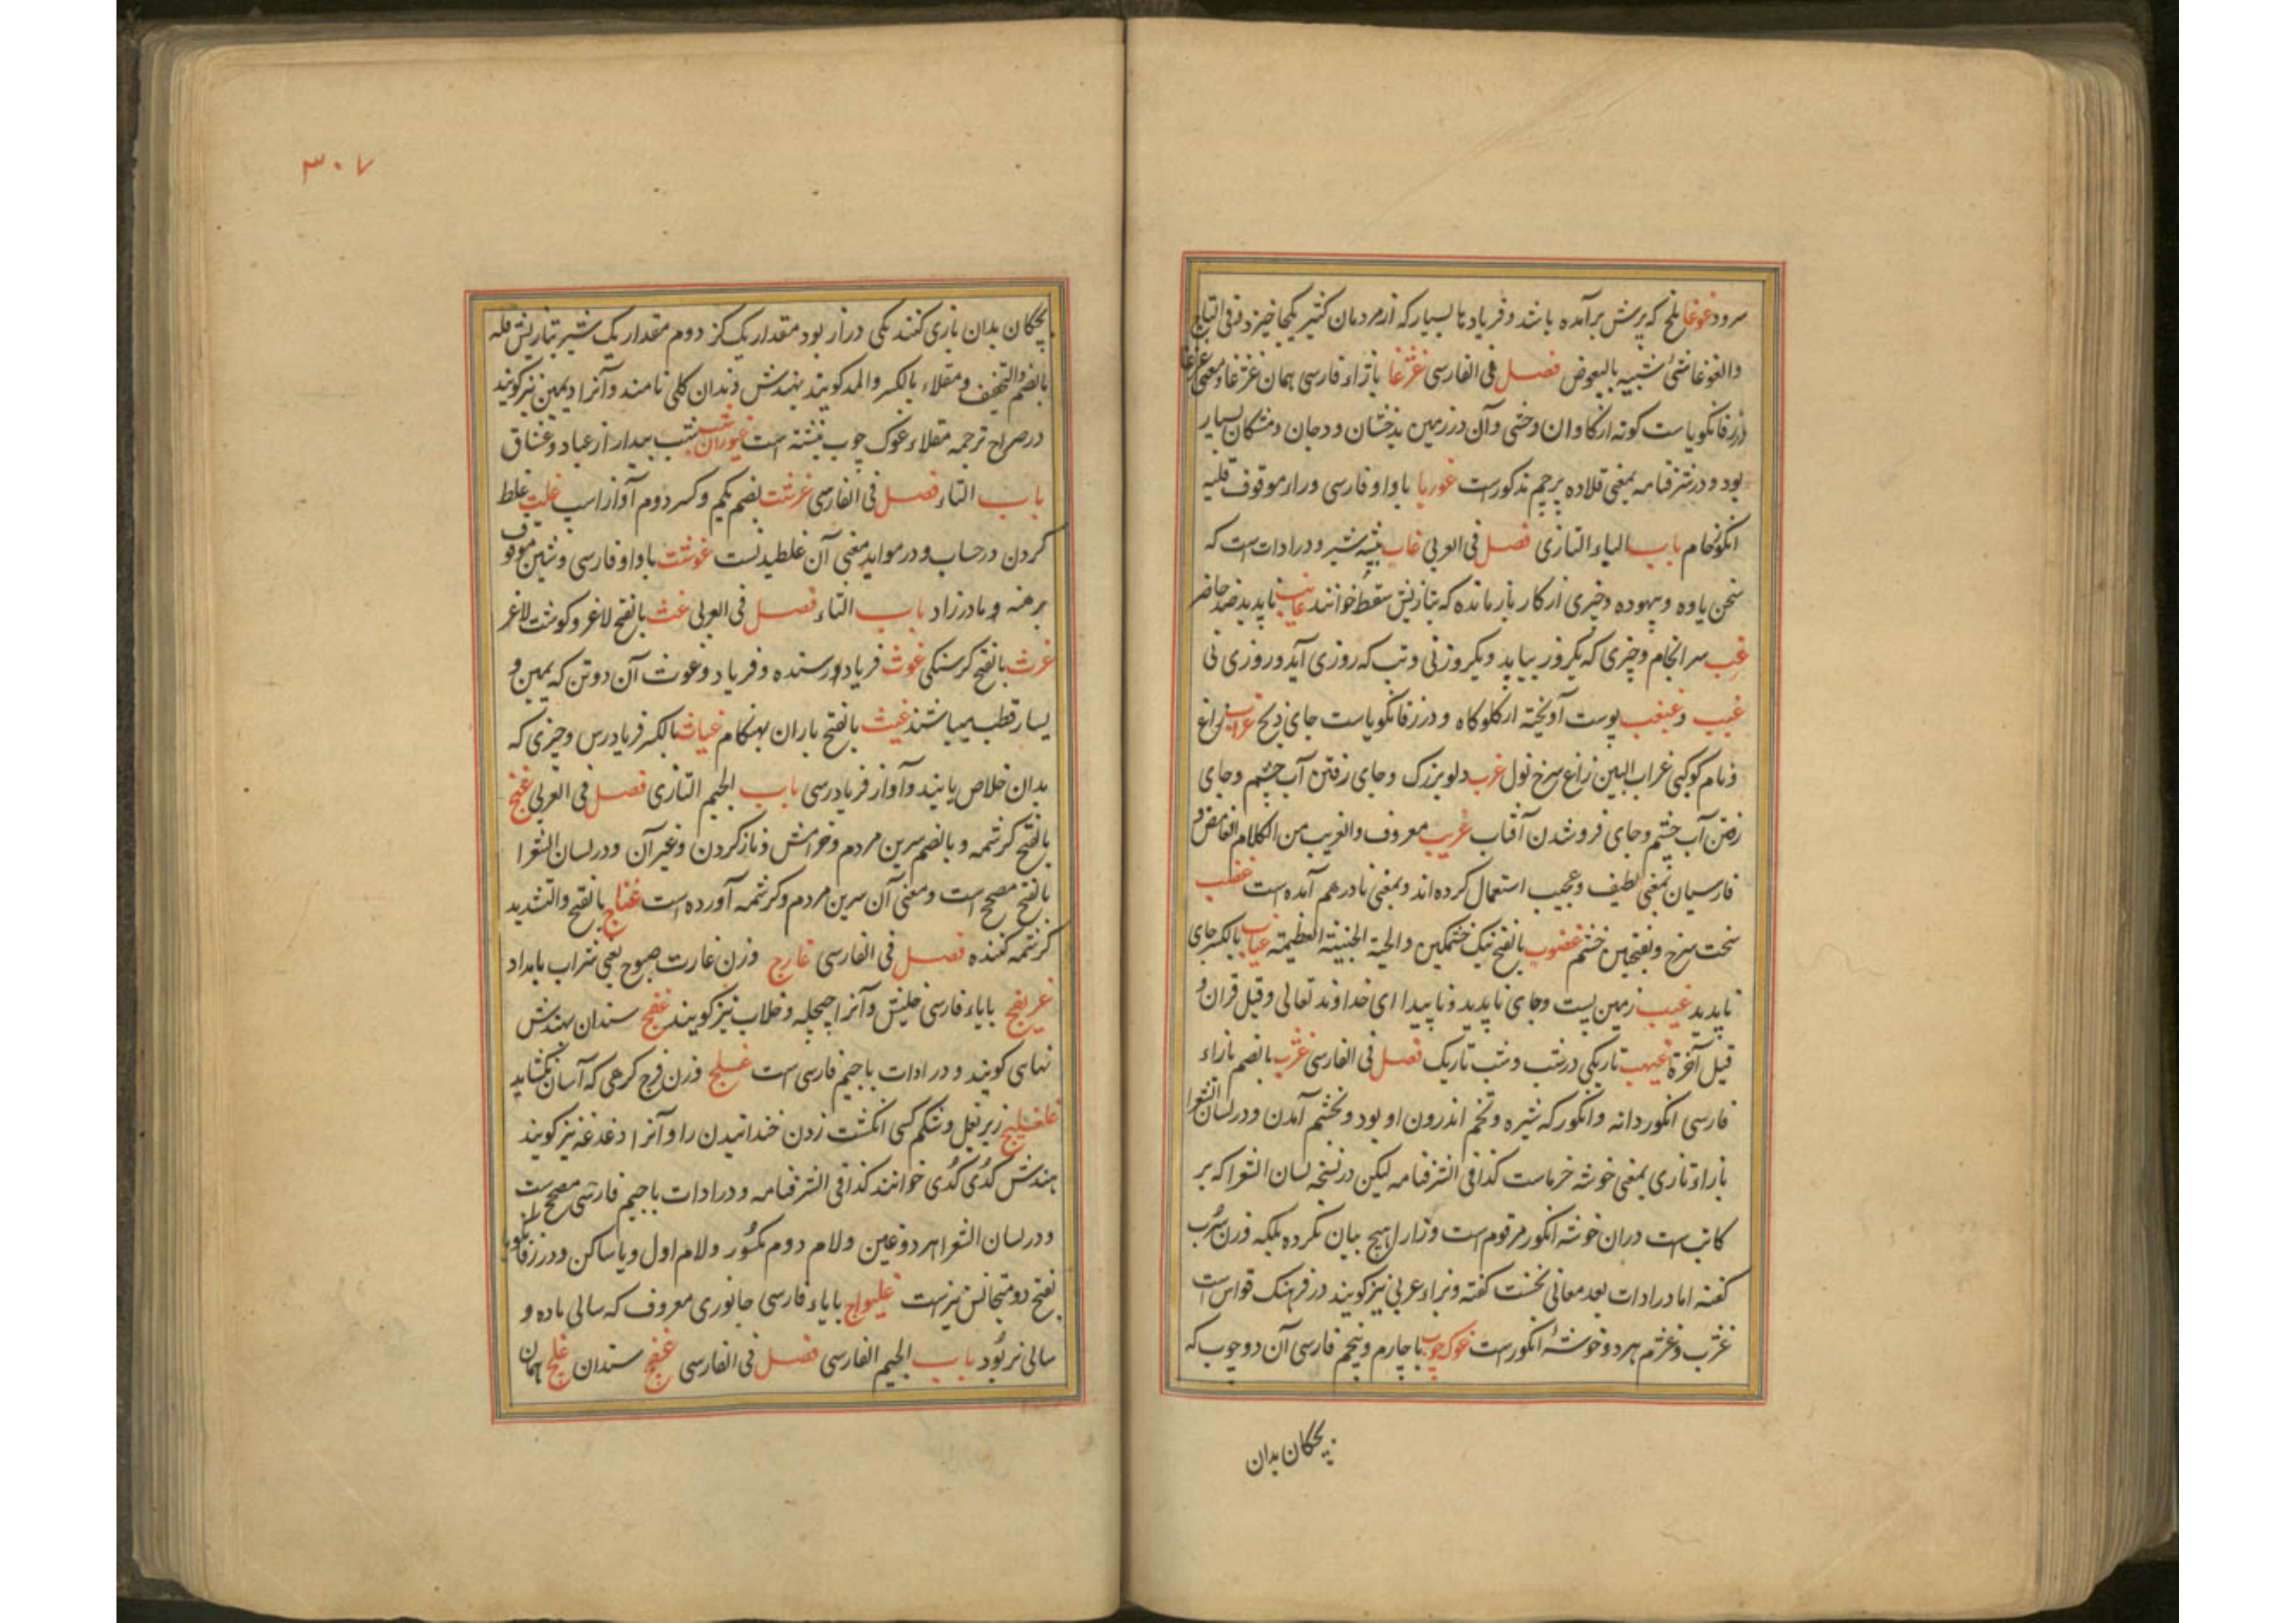 سرود غوغا ملخ که پرش برآمده باشد و فریادها بسیار که از مردمان کثیر یکجا خیزد و فی التاج
والغوغا شیٔ شبیه بالبعوض فصل فی الفارسی غژغا بازاء فارسی همان غژغاو بمعنی
زفانگویاست کونه از کاوان وحشی و آن در زمین بدخشان و
بود و در شرفنامه بمعنی قلاده پرچم مذکورست غوربا باواو فارسی وراء موقوف قلیه
انکور خام باب الباء التازی فصل فی العربی غاب بیشه شیر و در ادات است که
سخن یاوه و بیهوده و چیزی از کار بازمانده که بتازیش سقط خوانند غایب ناپدید ضد حاضر
غب سرانجام و چیزی که یکروز بیاید و یکروز نی و تب که روزی آید و روزی نی
غبب و غبغب پوست آویخته از کلو کاه و در زفانکویاست جای ذبح غراب زاغ
و نام کوکبی غراب البین زاغ سرخ نول غرب دلو بزرک و جای رفتن آب چشم و جای
رفتن آب چشم و جای فروشدن آفتاب غریب معروف والغریب من الکلام الغامض و
فارسیان بمعنی لطیف و عجیب استعمال کرده اند و بمعنی نادر هم آمده است غضب
سخت سرخ و بفتحین خشم غضوب بالفتح نیک خشمکین والحیة الخبیثة العظیمة غیاب بالکسر جای
ناپدید غیب زمین پست و جای ناپدید و ناپیدا ای خداوند تعالی و قیل قران و
قیل آخرة غیهب تاریکی در شب و شب تاریک فصل فی الفارسی غژب بالضم بازاء
فارسی انکور دانه و انکور که شیره و تخم اندرون او بود و بخشم آمدن و در لسان الشعرا
بازاء تازی بمعنی خوشه خرماست کذا فی الشرفنامه لیکن در نسخه لسان الشعرا که بر
کاتب است دران خوشه انکور مرقوم است و زا را هیچ بیان نکرده بلکه وزن سرب
کفته اما در ادات بعد معانی نخست کفته و براء عربی نیز کویند در فرهنک قواس است
غژب و غژم هر دو خوشهٔ انکورست غوک چوب باچارم و پنجم فارسی آن دو چوب که
بچکان بدان
۳۰۷
بچکان بدان بازی کنند یکی دراز بود مقدار یک کز دوم مقدار یک شبر بتازیش قله
بالضم والتخفیف و مقلاء بالکسر والمد کویند بهندش دندان کلی نامند و آنرا دیمین نیز کویند
در صراح ترجمه مقلاء غوک چوب نبشته است غیوران شب شب بیدار از عباد و عشاق
باب التاء فصل فی الفارسی غرشت بضم یکم و کسر دوم آواز اسب غلت غلط
کردن در حساب و در مواید معنی آن غلطیدنست غوشت باواو فارسی و شین موقوف
برهنه و مادرزاد باب الثاء فصل فی العربی غث بالفتح لاغر و کوشت لاغر
غرث بالفتح کرسنکی غوث فریاد رسنده و فریاد و غوث آن دو تن که یمین و
یسار قطب میباشند غیث بالفتح باران بهنکام غیاث بالکسر فریادرس و چیزی که
بدان خلاص یابند و آواز فریادرسی باب الجیم التازی فصل فی العربی غنج
بالفتح کرشمه و بالضم سرین مردم و خرامش و ناز کردن و غیر آن و در لسان الشعرا
بالفتح مصحح است و معنی آن سرین مردم و کرشمه آورده است غناج بالفتح والتشدید
کرشمه کننده فصل فی الفارسی غارج وزن غارت صبوح یعنی شراب بامداد
غریفج بایاء فارسی خلیش و آنرا چپچله و خلاب نیز کویند غفج سندان بهندش
نهاسی کویند و در ادات باجیم فارسی است غلج وزن فرج کرهی که آسان نکشاید
غلغلیج زیر بغل و شکم کسی انکشت زدن خندانیدن را و آنرا دغدغه نیز کویند
بهندش کدی کدی خوانند کذا فی الشرفنامه و در ادات باجیم فارسی مصحح است
و در لسان الشعرا هر دو غین ولام دوم مکسور ولام اول و یا ساکن و در زفانکویا
بفتح دو متجانس نیز است غلیواج بایاء فارسی جانوری معروف که سالی ماده و
سالی نر بود باب الجیم الفارسی فصل فی الفارسی غفج سندان غلج همان